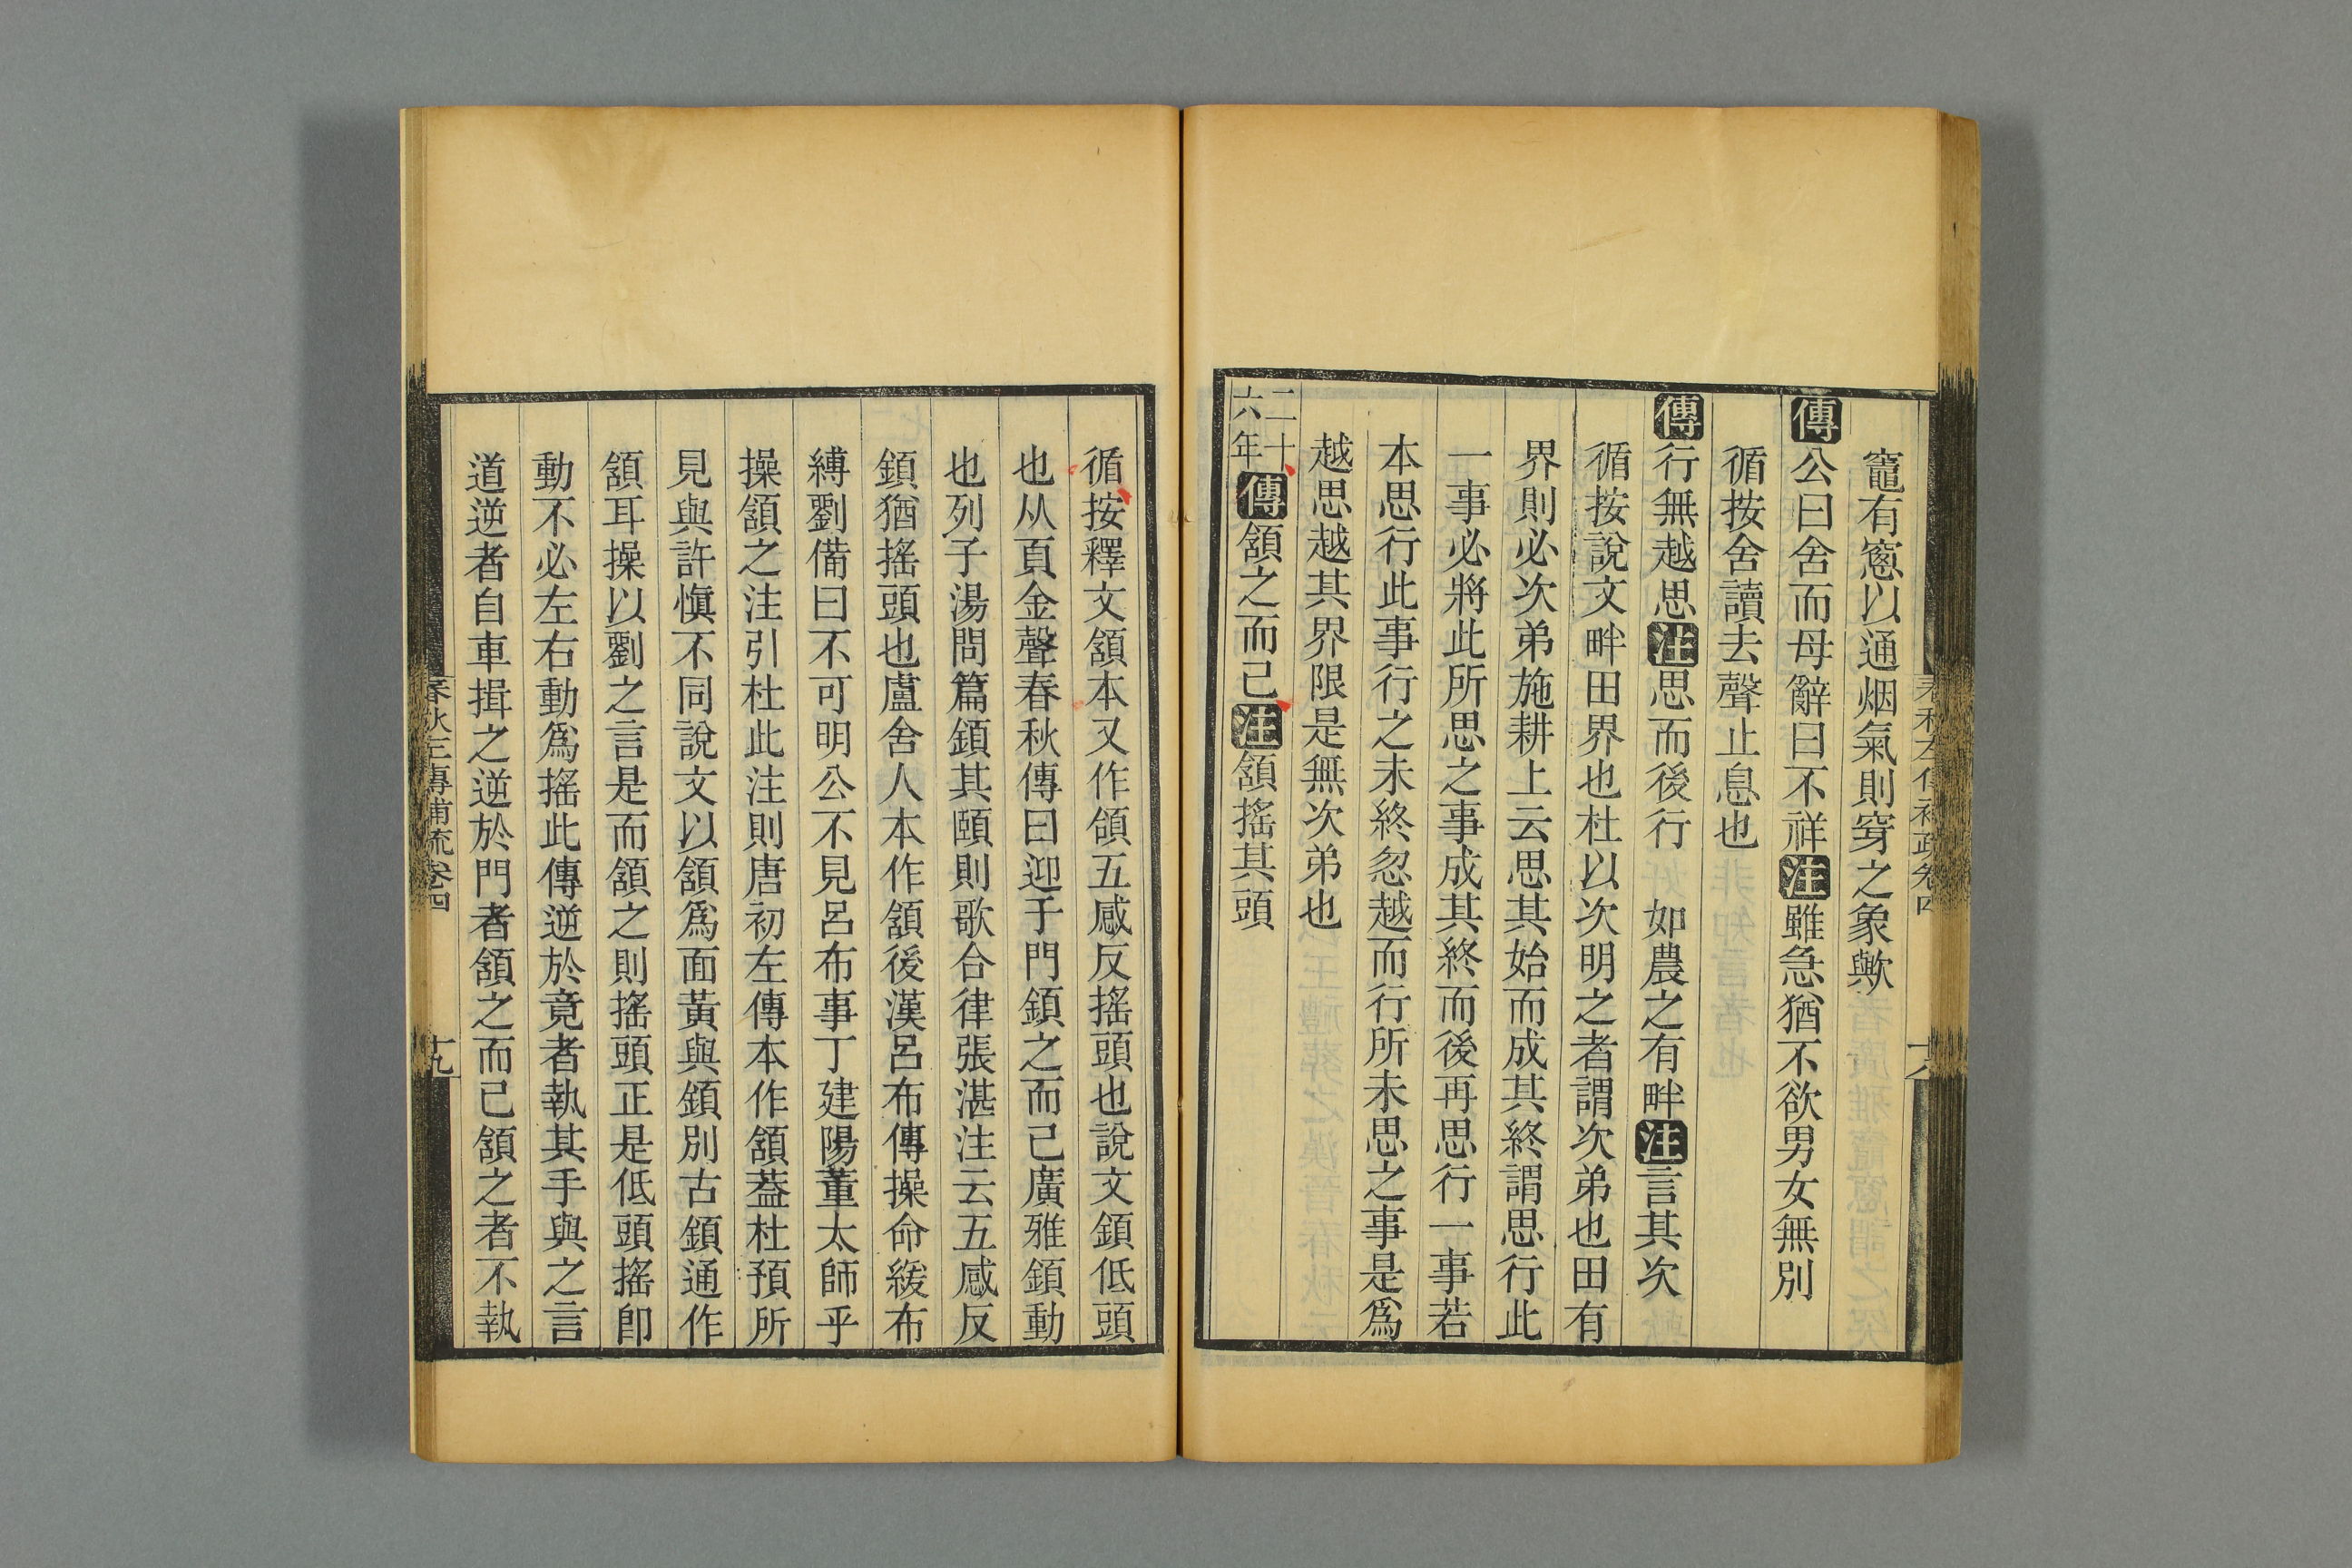 竈有窻以通烟氣則穿之象歟
傳公曰舍而母辭曰不祥注雖急猶不欲男女無別
循按舍讀去聲止息也
傳行無越思注思而後行　如農之有畔注言其次
循按說文畔田界也杜以次明之者謂次弟也田有
界則必次弟施耕上云思其始而成其終謂思行此
一事必將此所思之事成其終而後再思行一事若
本思行此事行之未終忽越而行所未思之事是爲
越思越其界限是無次弟也
二十六年傳頷之而已注頷搖其頭
循按釋文頷本又作頜五感反搖頭也說文顉低頭
也从頁金聲春秋傳曰迎于門顉之而已廣雅顉動
也列子湯問篇顉其頤則歌合律張湛注云五感反
顉猶搖頭也盧舍人本作頷後漢呂布傳操命緩布
縛劉備曰不可明公不見呂布事丁建陽董太師乎
操頷之注引杜此注則唐初左傳本作頷葢杜預所
見與許愼不同說文以頷爲面黃與顉別古顉通作
頷耳操以劉之言是而頷之則搖頭正是低頭搖卽
動不必左右動爲搖此傳逆於竟者執其手與之言
道逆者自車揖之逆於門者頷之而已頷之者不執
春秋左傳補疏卷四
十九